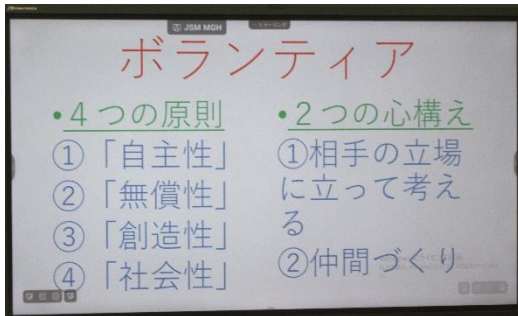 JSM MGH
ボランティア
•4つの原則
①「自主性」
②「無償性」
③「創造性」
④「社会性」
•2つの心構え
①相手の立場
に立って考え
る
②仲間づくり